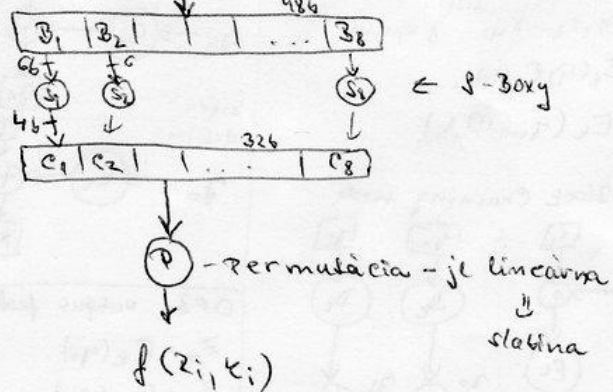 48b
B1 B2 ... B8
6b 6
S1 S2 S8 ← S-Boxy
4b
32b
C1 C2 ... C8
P - Permutácia - je lineárna
⇓
slabina
f(Zi, Ki)